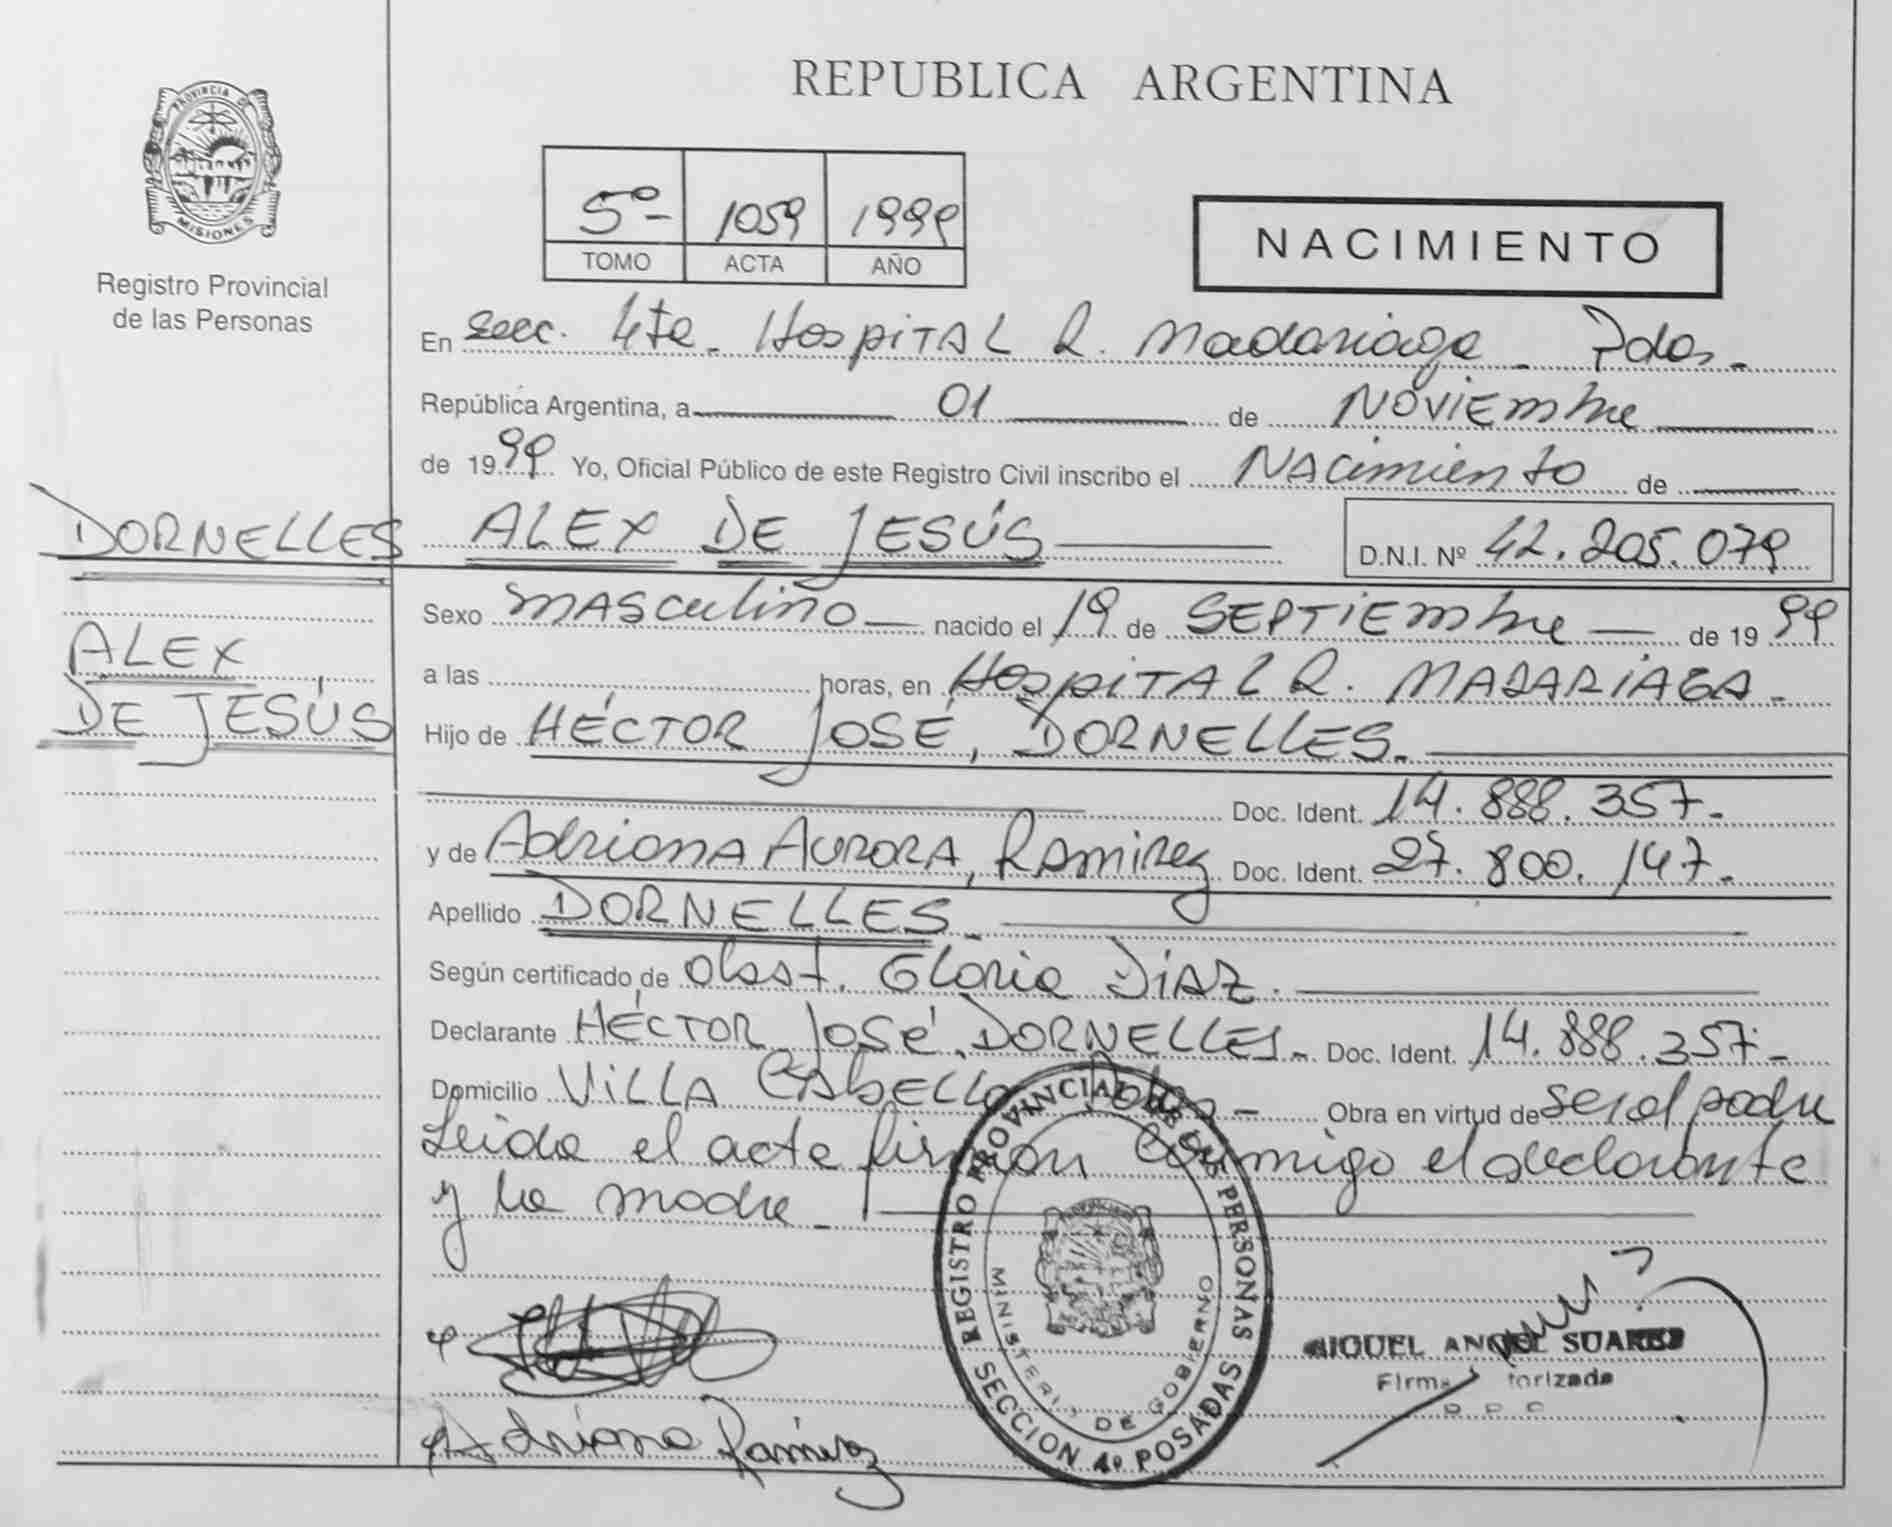 REPUBLICA ARGENTINA
PROVINCIA DE
MISIONES
Registro Provincial
de las Personas
5º- 1059 1999
TOMO ACTA AÑO
NACIMIENTO
En secc. 4ta. Hospital R. Madariaga - Pdas.-
República Argentina, a 01 de Noviembre
de 1999 Yo, Oficial Público de este Registro Civil inscribo el Nacimiento de
DORNELLES ALEX DE JESÚS D.N.I. Nº 42.205.079
ALEX
DE JESÚS
Sexo masculino nacido el 19 de SEPTIEmbre de 1999
a las horas, en Hospital R. MADARIAGA.
Hijo de HÉCTOR JOSÉ, DORNELLES.
Doc. Ident. 14.888.357.
y de Adriana AURORA, Ramirez Doc. Ident. 27.800.147.
Apellido DORNELLES
Según certificado de Obst. Gloria DiAZ.
Declarante HÉCTOR JOSÉ, DORNELLES. Doc. Ident. 14.888.357.
Domicilio VILLA CAbELLO Pdas.- Obra en virtud de ser el padre
Leida el acta firman conmigo el declarante
y la madre
REGISTRO PROVINCIAL DE LAS PERSONAS
MINISTERIO DE GOBIERNO
SECCION 4º POSADAS
MIGUEL ANGEL SUAREZ
Firma torizada
Adriana Ramirez